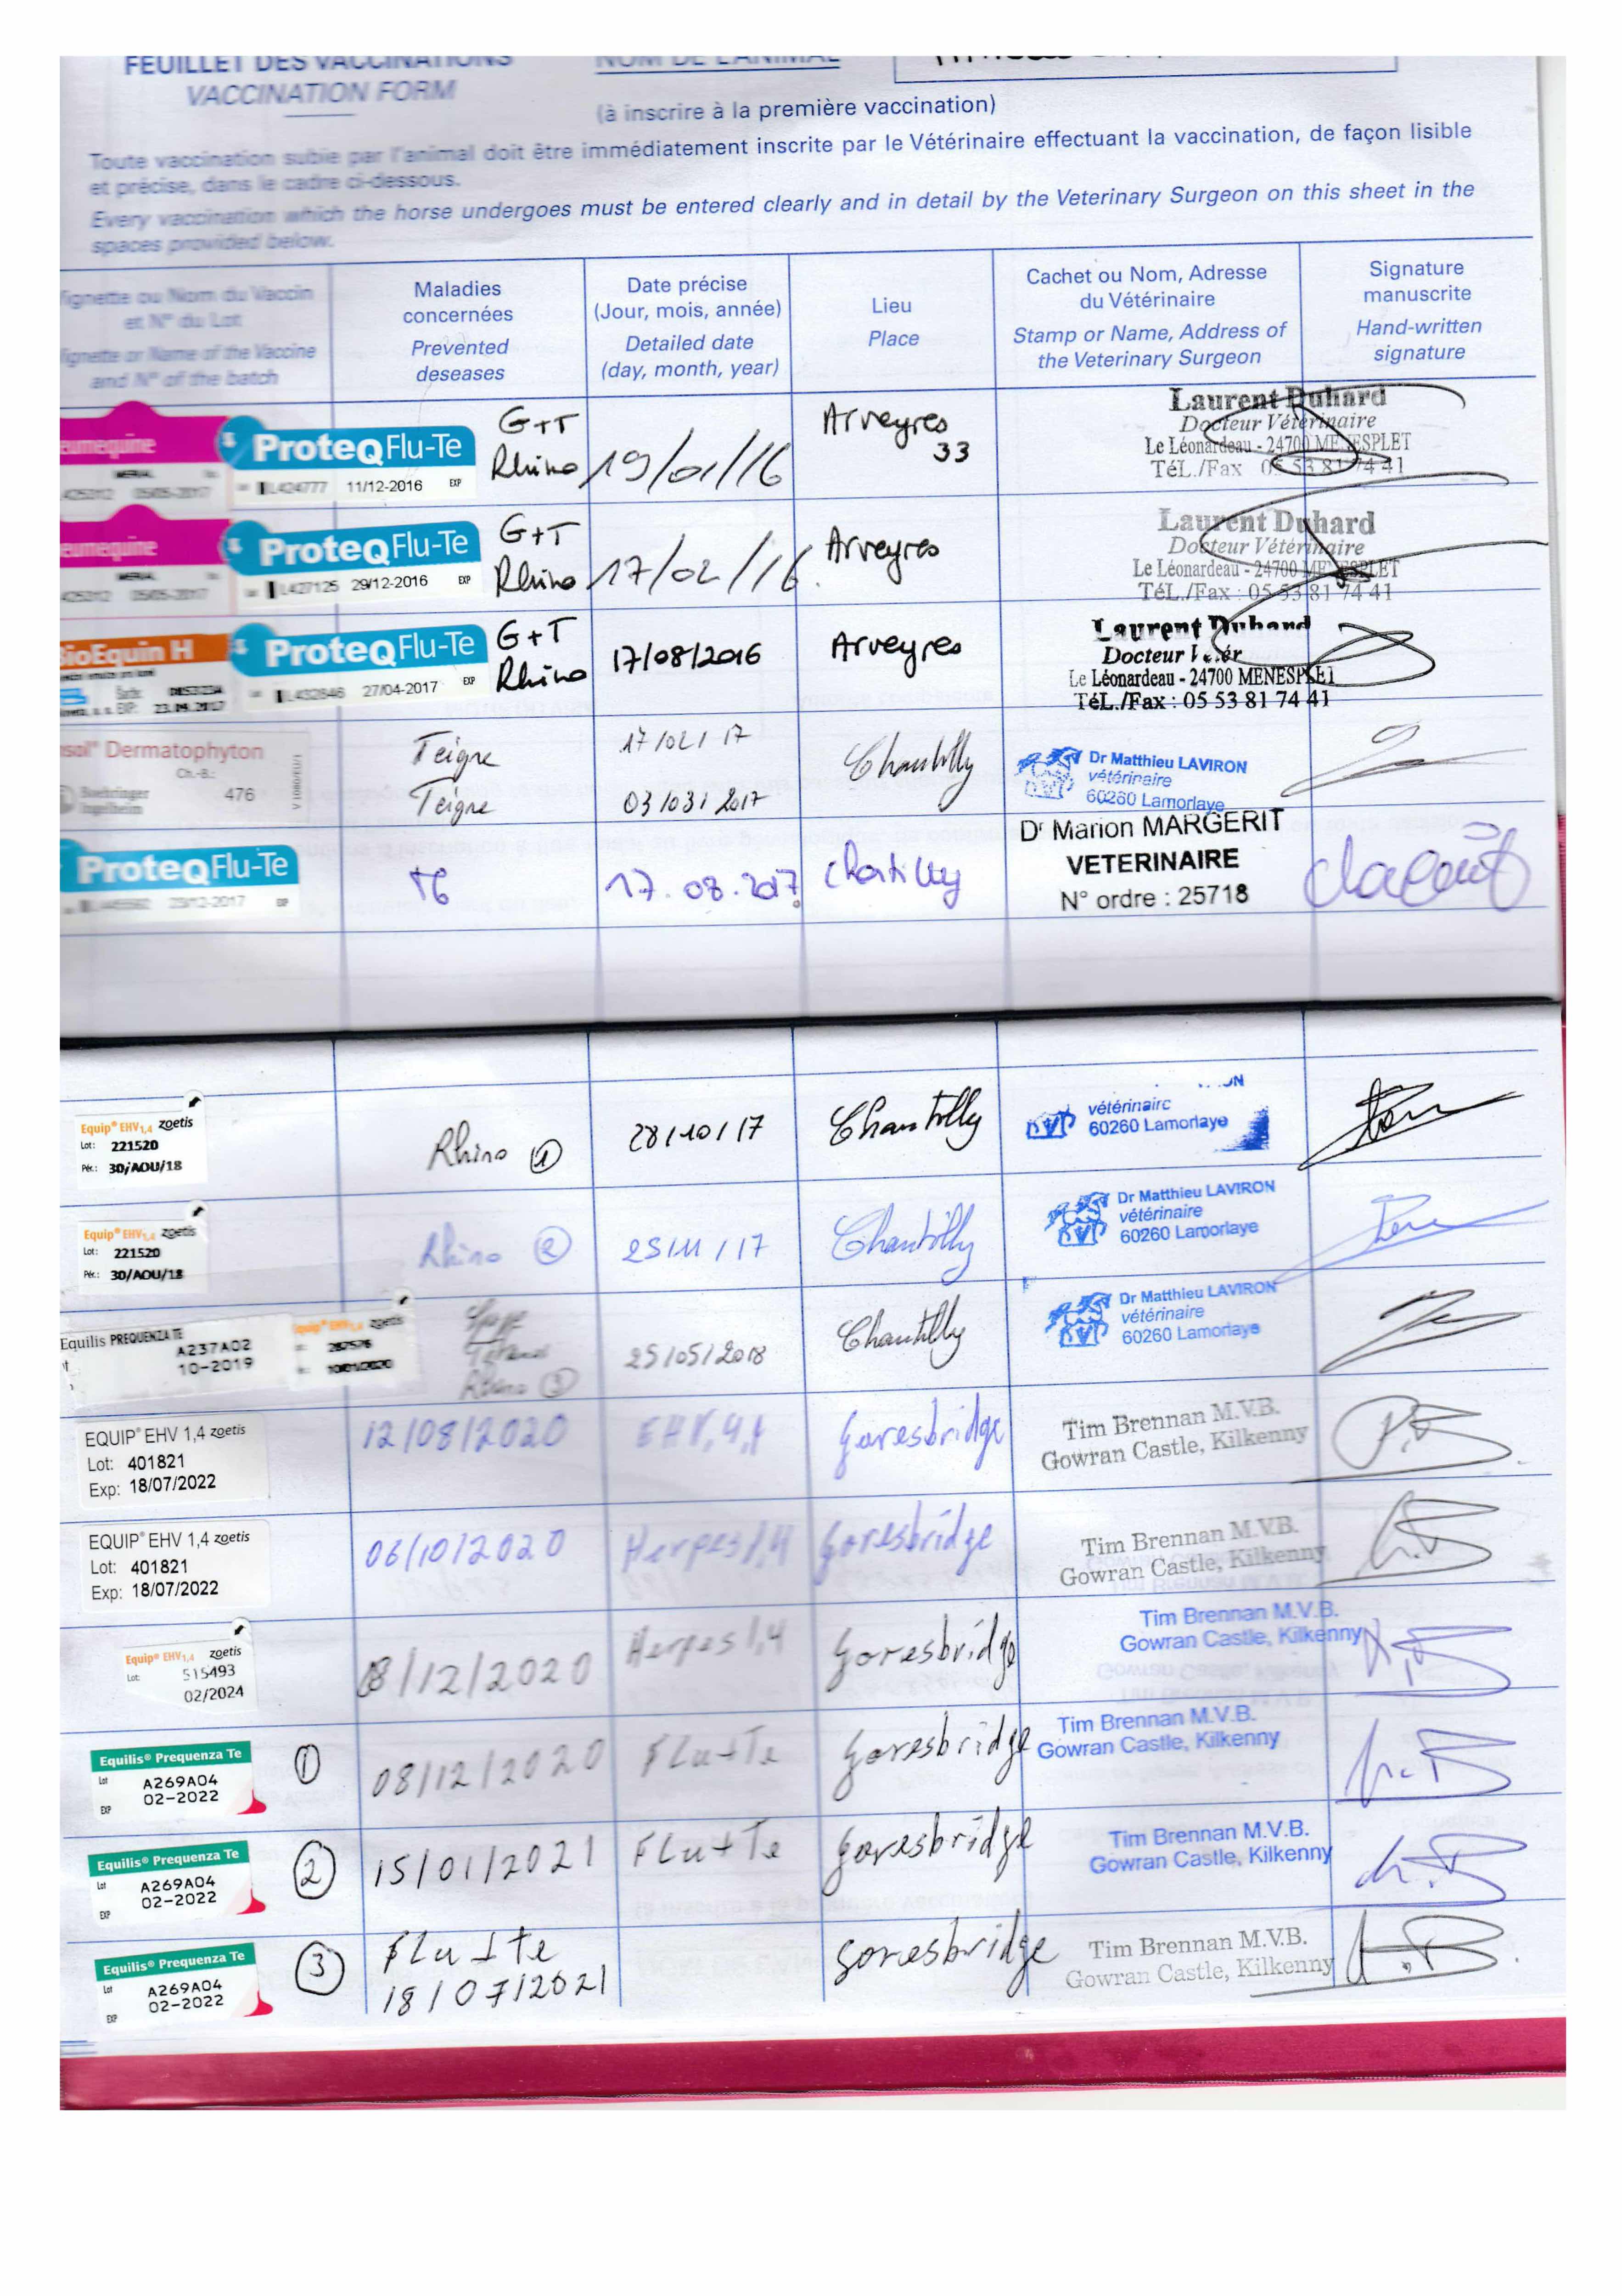 FEUILLET DES VACCINATIONS
VACCINATION FORM
NOM DE L'ANIMAL
(à inscrire à la première vaccination)
Toute vaccination subie par l'animal doit être immédiatement inscrite par le Vétérinaire effectuant la vaccination, de façon lisible
et précise, dans le cadre ci-dessous.
Every vaccination which the horse undergoes must be entered clearly and in detail by the Veterinary Surgeon on this sheet in the
spaces provided below.
ignette ou Nom du Vaccin
et N° du Lot
ignette or Name of the Vaccine
and N° of the batch
Maladies
concernées
Prevented
deseases
Date précise
(Jour, mois, année)
Detailed date
(day, month, year)
Lieu
Place
Cachet ou Nom, Adresse
du Vétérinaire
Stamp or Name, Address of
the Veterinary Surgeon
Signature
manuscrite
Hand-written
signature
eumequine
MERIAL
425312 05/05-2017
ProteqFlu-Te
L424777 11/12-2016 EXP
G+T
Rhino
19/01/16
Arveyres
33
Laurent Duhard
Docteur Vétérinaire
Le Léonardeau - 24700 MENESPLET
TéL./Fax 05 53 81 74 41
eumequine
MERIAL
425312 05/05-2017
ProteqFlu-Te
L427125 29/12-2016 EXP
G+T
Rhino
17/02/16
Arveyres
Laurent Duhard
Docteur Vétérinaire
Le Léonardeau - 24700 MENESPLET
TéL./Fax : 05 53 81 74 41
BioEquin H
EXP: 23.09.2017
ProteqFlu-Te
L432846 27/04-2017 EXP
G+T
Rhino
17/08/2016
Arveyres
Laurent Duhard
Docteur Vétér
Le Léonardeau - 24700 MENESPLET
TéL./Fax : 05 53 81 74 41
sol® Dermatophyton
Ch.-B.:
Boehringer
Ingelheim
476
Teigne
17/02/17
Teigne
03/03/2017
Chantilly
Dr Matthieu LAVIRON
vétérinaire
60260 Lamorlaye
ProteqFlu-Te
23/12-2017 EXP
TG
17.08.2017
Chantilly
Dr Marion MARGERIT
VETERINAIRE
N° ordre : 25718
Equip® EHV1,4 zoetis
Lot: 221520
Pér.: 30/AOU/18
Rhino 1
28/10/17
Chantilly
vétérinaire
60260 Lamorlaye
Equip® EHV1,4 zoetis
Lot: 221520
Pér.: 30/AOU/18
Rhino 2
25/11/17
Chantilly
Dr Matthieu LAVIRON
vétérinaire
60260 Lamorlaye
Equilis PREQUENZA TE
A237A02
10-2019
Equip® EHV1,4 zoetis
287576
10/01/2020
Rhino 3
25/05/2018
Chantilly
Dr Matthieu LAVIRON
vétérinaire
60260 Lamorlaye
EQUIP® EHV 1,4 zoetis
Lot: 401821
Exp: 18/07/2022
12/08/2020
EHV,4,1
Goresbridge
Tim Brennan M.V.B.
Gowran Castle, Kilkenny
EQUIP® EHV 1,4 zoetis
Lot: 401821
Exp: 18/07/2022
06/10/2020
Herpes 1,4
Goresbridge
Tim Brennan M.V.B.
Gowran Castle, Kilkenny
Equip® EHV1,4 zoetis
Lot: 515493
02/2024
8/12/2020
Herpes 1,4
Goresbridge
Tim Brennan M.V.B.
Gowran Castle, Kilkenny
Equilis® Prequenza Te
Lot A269A04
EXP 02-2022
1
08/12/2020
Flu+Te
Goresbridge
Tim Brennan M.V.B.
Gowran Castle, Kilkenny
Equilis® Prequenza Te
Lot A269A04
EXP 02-2022
2
15/01/2021
Flu+Te
Goresbridge
Tim Brennan M.V.B.
Gowran Castle, Kilkenny
Equilis® Prequenza Te
Lot A269A04
EXP 02-2022
3
Flu+te
18/07/2021
Goresbridge
Tim Brennan M.V.B.
Gowran Castle, Kilkenny